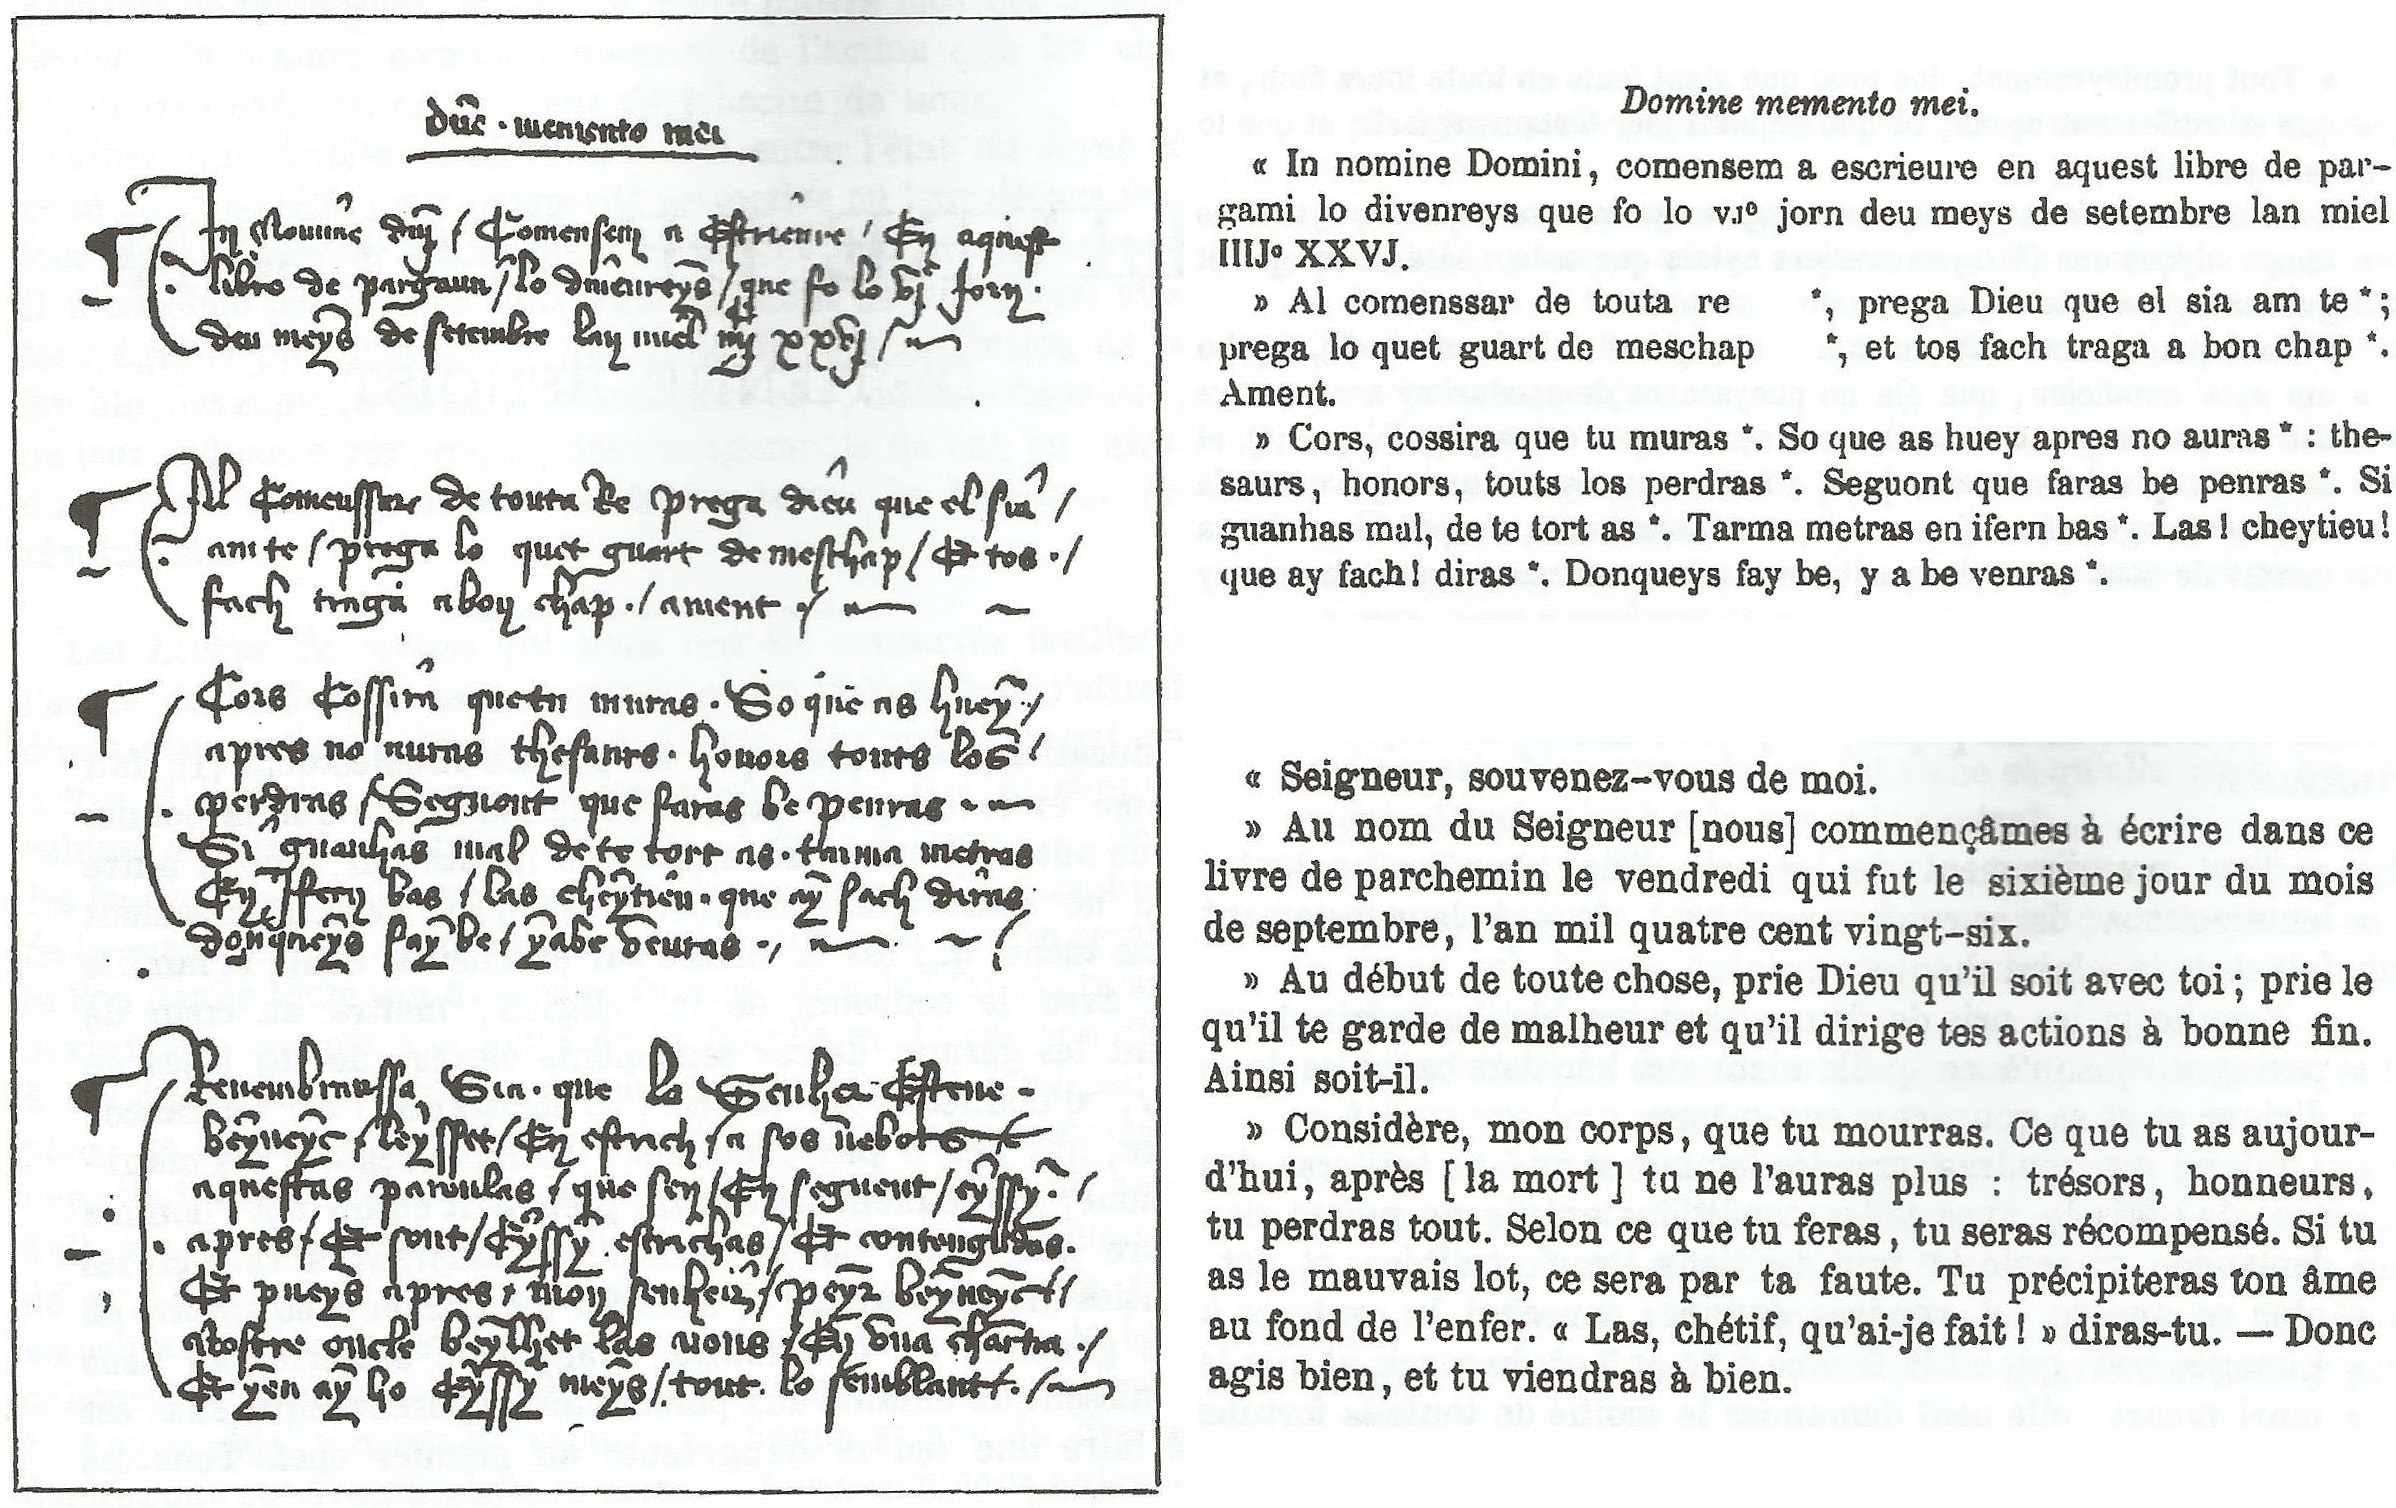 dñe · memento mei
In Nomine dñi / Comensem a Escrieure / En aquest
libre de pargami / lo diuenreys / que fo lo vj jorn ·
deu meys de setembre lan miel iiij xxvj /
Al Comenssar de touta Re prega dieu que el sia /
am te / prega lo quet guart de meschap / Et tos · /
fach traga a bon chap · / ament /
Cors Cossira que tu muras · So que as huey /
apres no auras thesaurs · honors touts los /
perdras / Seguont que faras be penras ·
Si guanhas mal de te tort as · tarma metras
En iffern bas / las cheytieu · que ay fach diras
donqueys fay be / y a be venras · /
Remembranssa Sia · que lo Senher Esteue -
beyneyc / leysset / En escrich / a sos nebots
aquestas paroulas / que sen / En seguent / eyssy /
apres / Et sont / Eyssy escrichas / Et contengudas ·
Et pueys apres / mon senher / peyr beyneyc /
vostre oncle beylhet las nous / En vna charta · /
Et yeu ay ho Eyssy meys / tout lo semblant · /
Domine memento mei.
« In nomine Domini, comensem a escrieure en aquest libre de par-
gami lo divenreys que fo lo vjº jorn deu meys de setembre lan miel
IIIJᶜ XXVJ.
» Al comenssar de touta re *, prega Dieu que el sia am te *;
prega lo quet guart de meschap *, et tos fach traga a bon chap *.
Ament.
» Cors, cossira que tu muras *. So que as huey apres no auras * : the-
saurs, honors, touts los perdras *. Seguont que faras be penras *. Si
guanhas mal, de te tort as *. Tarma metras en ifern bas *. Las ! cheytieu !
que ay fach ! diras *. Donqueys fay be, y a be venras *.
« Seigneur, souvenez-vous de moi.
» Au nom du Seigneur [nous] commençâmes à écrire dans ce
livre de parchemin le vendredi qui fut le sixième jour du mois
de septembre, l'an mil quatre cent vingt-six.
» Au début de toute chose, prie Dieu qu'il soit avec toi ; prie le
qu'il te garde de malheur et qu'il dirige tes actions à bonne fin.
Ainsi soit-il.
» Considère, mon corps, que tu mourras. Ce que tu as aujour-
d'hui, après [ la mort ] tu ne l'auras plus : trésors, honneurs,
tu perdras tout. Selon ce que tu feras, tu seras récompensé. Si tu
as le mauvais lot, ce sera par ta faute. Tu précipiteras ton âme
au fond de l'enfer. « Las, chétif, qu'ai-je fait ! » diras-tu. — Donc
agis bien, et tu viendras à bien.